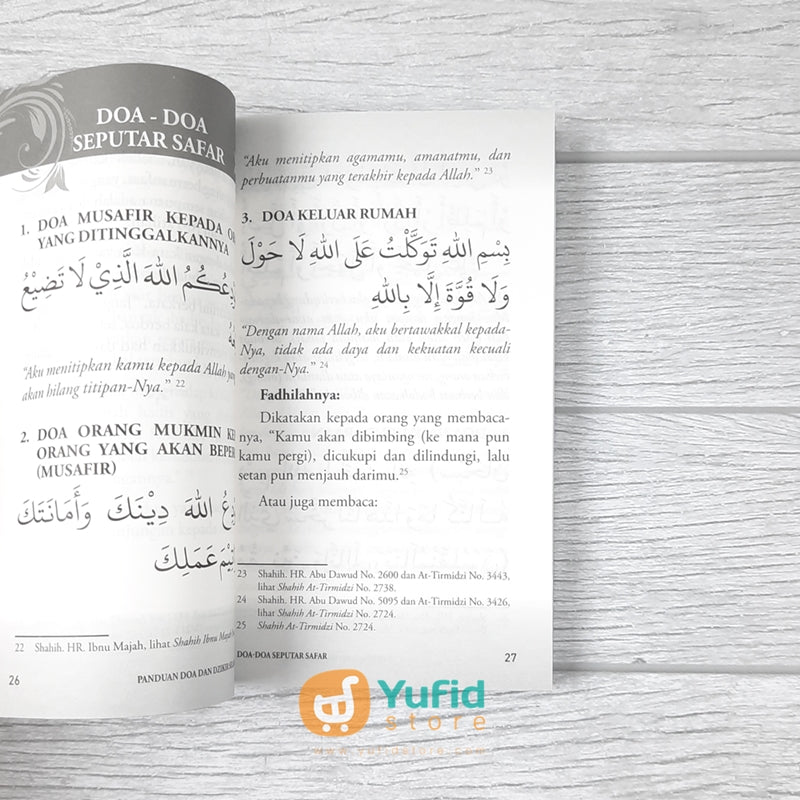 DOA - DOA
SEPUTAR SAFAR
1. DOA MUSAFIR KEPADA
YANG DITINGGALKANNYA
اللهَ الَّذِيْ لَا تَضِيْعُ
"Aku menitipkan kamu kepada Allah yang
akan hilang titipan-Nya." 22
2. DOA ORANG MUKMIN
ORANG YANG AKAN
(MUSAFIR)
اللهَ دِيْنَكَ وَأَمَانَتَكَ
عَمَلِكَ
22 Shahih. HR. Ibnu Majah, lihat Shahih Ibnu Majah
26 PANDUAN DOA DAN DZIKIR
"Aku menitipkan agamamu, amanatmu, dan
perbuatanmu yang terakhir kepada Allah." 23
3. DOA KELUAR RUMAH
بِسْمِ اللهِ تَوَكَّلْتُ عَلَى اللهِ لَا حَوْلَ
وَلَا قُوَّةَ إِلَّا بِاللهِ
"Dengan nama Allah, aku bertawakkal kepada-
Nya, tidak ada daya dan kekuatan kecuali
dengan-Nya." 24
Fadhilahnya:
Dikatakan kepada orang yang membaca-
nya, "Kamu akan dibimbing (ke mana pun
kamu pergi), dicukupi dan dilindungi, lalu
setan pun menjauh darimu.25
Atau juga membaca:
23 Shahih. HR. Abu Dawud No. 2600 dan At-Tirmidzi No. 3443,
lihat Shahih At-Tirmidzi No. 2738.
24 Shahih. HR. Abu Dawud No. 5095 dan At-Tirmidzi No. 3426,
lihat Shahih At-Tirmidzi No. 2724.
25 Shahih At-Tirmidzi No. 2724.
DOA-DOA SEPUTAR SAFAR 27
Yufid
store
www.yufidstore.com